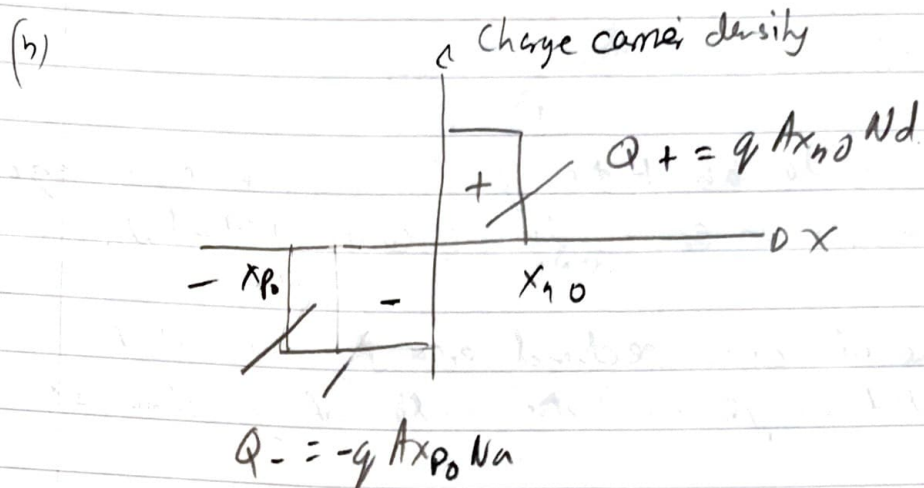 (h)
Charge carrier density
+
Q+ = q Ax_{n0} Nd
x
- x_{p0}
-
x_{n0}
Q- = -q Ax_{p0} Na